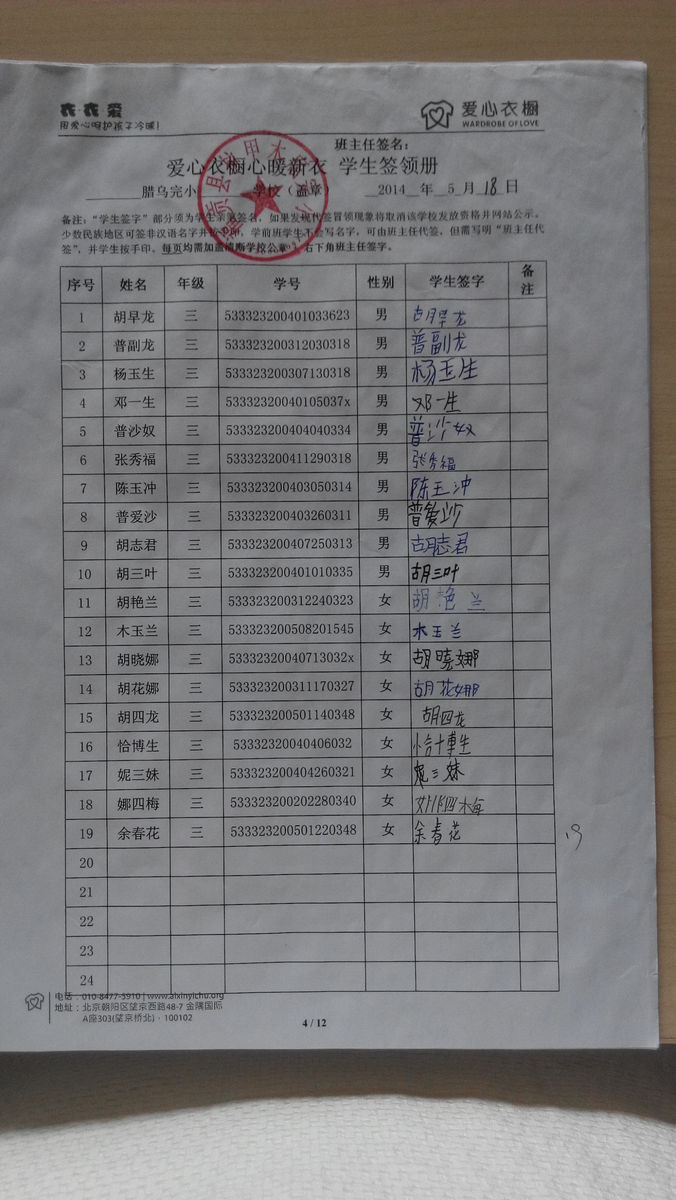 衣·衣·爱
用爱心呵护孩子冷暖!
爱心衣橱
WARDROBE OF LOVE
班主任签名:
爱心衣橱心暖新衣 学生签领册
腊乌完小 学校(盖章) 2014 年 5 月 18 日
备注:“学生签字”部分须为学生亲笔签名,如果发现代签冒领现象将取消该学校发放资格并网站公示。
少数民族地区可签非汉语名字并按手印,学前班学生不会写名字,可由班主任代签,但需写明“班主任代
签”,并学生按手印。每页均需加盖清晰学校公章,右下角班主任签字。
序号 姓名 年级 学号 性别 学生签字 备注
1 胡早龙 三 533323200401033623 男 胡早龙
2 普副龙 三 533323200312030318 男 普副龙
3 杨玉生 三 533323200307130318 男 杨玉生
4 邓一生 三 53332320040105037x 男 邓一生
5 普沙奴 三 533323200404040334 男 普沙奴
6 张秀福 三 533323200411290318 男 张秀福
7 陈玉冲 三 533323200403050314 男 陈玉冲
8 普爱沙 三 533323200403260311 男 普爱沙
9 胡志君 三 533323200407250313 男 胡志君
10 胡三叶 三 533323200401010335 男 胡三叶
11 胡艳兰 三 533323200312240323 女 胡艳兰
12 木玉兰 三 533323200508201545 女 木玉兰
13 胡晓娜 三 53332320040713032x 女 胡晓娜
14 胡花娜 三 533323200311170327 女 胡花娜
15 胡四龙 三 533323200501140348 女 胡四龙
16 恰博生 三 53332320040406032 女 恰博生
17 妮三妹 三 533323200404260321 女 妮三妹
18 娜四梅 三 533323200202280340 女 娜四梅
19 余春花 三 533323200501220348 女 余春花
19
20
21
22
23
24
电话:010-8477-5910 | www.aixinyichu.org
地址:北京朝阳区望京西路48-7 金隅国际
A座303(望京桥北)· 100102
4 / 12